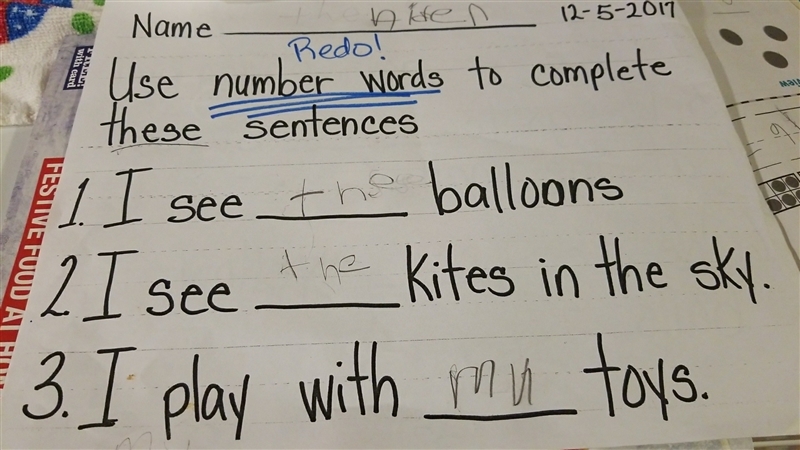 Name 12-5-2017
Redo!
Use number words to complete
these sentences
1. I see the balloons
2. I see the kites in the sky.
3. I play with my toys.
with card
FESTIVE FOOD AT HO